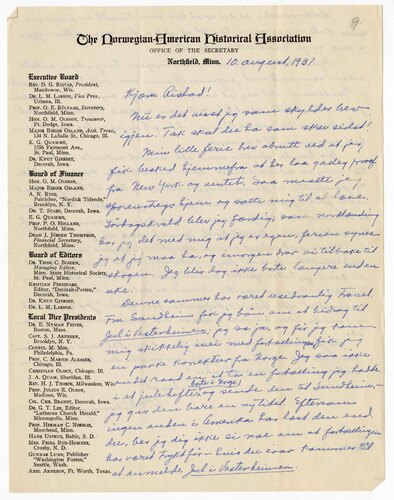 9
The Norwegian-American Historical Association
OFFICE OF THE SECRETARY
Northfield, Minn. 10. august, 1931.
Executive Board
REV. D. G. RISTAD, President,
Manitowoc, Wis.
DR. L. M. LARSON, Vice Pres.,
Urbana, Ill.
PROF. O. E. RÖLVAAG, Secretary,
Northfield, Minn.
HON. O. M. OLESON, Treasurer,
Ft. Dodge, Iowa.
MAJOR BIRGER OSLAND, Asst. Treas.,
134 S. LaSalle St., Chicago, Ill.
E. G. QUAMME,
1356 Fairmount Ave.,
St. Paul, Minn.
DR. KNUT GJERSET,
Decorah, Iowa.
Board of Finance
HON. O. M. OLESON,
MAJOR BIRGER OSLAND,
A. N. RYGG,
Publisher, "Nordisk Tidende,"
Brooklyn, N. Y.
DR. T. STABO, Decorah, Iowa.
E. G. QUAMME,
PROF. P. O. HOLLAND,
Northfield, Minn.
DEAN J. JÖRGEN THOMPSON,
Financial Secretary,
Northfield, Minn.
Board of Editors
DR. THEO. C. BLEGEN,
Managing Editor,
Minn. State Historical Society,
St. Paul, Minn.
KRISTIAN PRESTGARD,
Editor, "Decorah-Posten,"
Decorah, Iowa.
DR. KNUT GJERSET,
DR. L. M. LARSON,
Local Vice Presidents
DR. E. NYMAN FIGVED,
Boston, Mass.
CAPT. S. J. ARNESEN,
Brooklyn, N. Y.
CONSUL M. MOE,
Philadelphia, Pa.
PROF. C. MARTIN ALSAGER,
Chicago, Ill.
CHRISTIAN OLSEN, Chicago, Ill.
J. A. QUAM, Sheridan, Ill.
REV. H. J. THORPE, Milwaukee, Wis.
PROF. JULIUS E. OLSON,
Madison, Wis.
COL. CHR. BRANDT, Decorah, Iowa.
DR. G. T. LEE, Editor
"Lutheran Church Herald,"
Minneapolis, Minn.
PROF. HERMAN C. NORDLIE,
Moorhead, Minn.
HANS USTRUD, Baltic, S. D.
MRS. FRIDA BUE-HOMNES,
Crosby, N. D.
GUNNAR LUND, Publisher
"Washington Posten,"
Seattle, Wash.
AXEL ARNESON, Ft. Worth, Texas.
Kjære Ristad!
Nu er det visst jeg som skylder brev
igjen. Tak skal du ha som skrev sidst!
Min lille ferie blev abrutt ved at jeg
fik besked hjemmefra at her laa galley proof
fra New York og ventet. Saa maatte jeg
sporenstregs hjem og sætte mig til at læse.
Forhagskveld blev jeg færdig; som nordlænding
har jeg det med mig at jeg er egen, ferien synes
jeg at jeg maa ha, og imorgen drar vi tilbake til
skogen. Jeg blir dog ikke borte længere end en
uke.
Denne sommer har været usedvanlig travel.
Fra Sundheim fik jeg bön om et bidrag til
Jul i Vesterheimen; jeg sa ja, og för jeg kom
mig skikkelig ivei med fortællingen fik jeg
en pakke korrektur fra Norge. Jeg saa ikke
anden raad end at ta en fortælling jeg hadde
i et julehefte borte i Norge og sende den til Sundheim,—
jeg gav den bare en ny titel. Eftersom
ingen anden i Amerika har læst den end
du, bør jeg dig ikke si noe om at fortællingen
har været trykt för — hvis du var kommer til
at anmelde Jul i Vesterheimen.